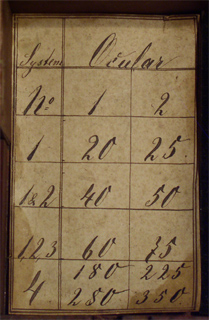 System Ocular
No. 1 2
1 20 25.
1&2 40 50
1,2,3 60 75
180 225
4 280 350.